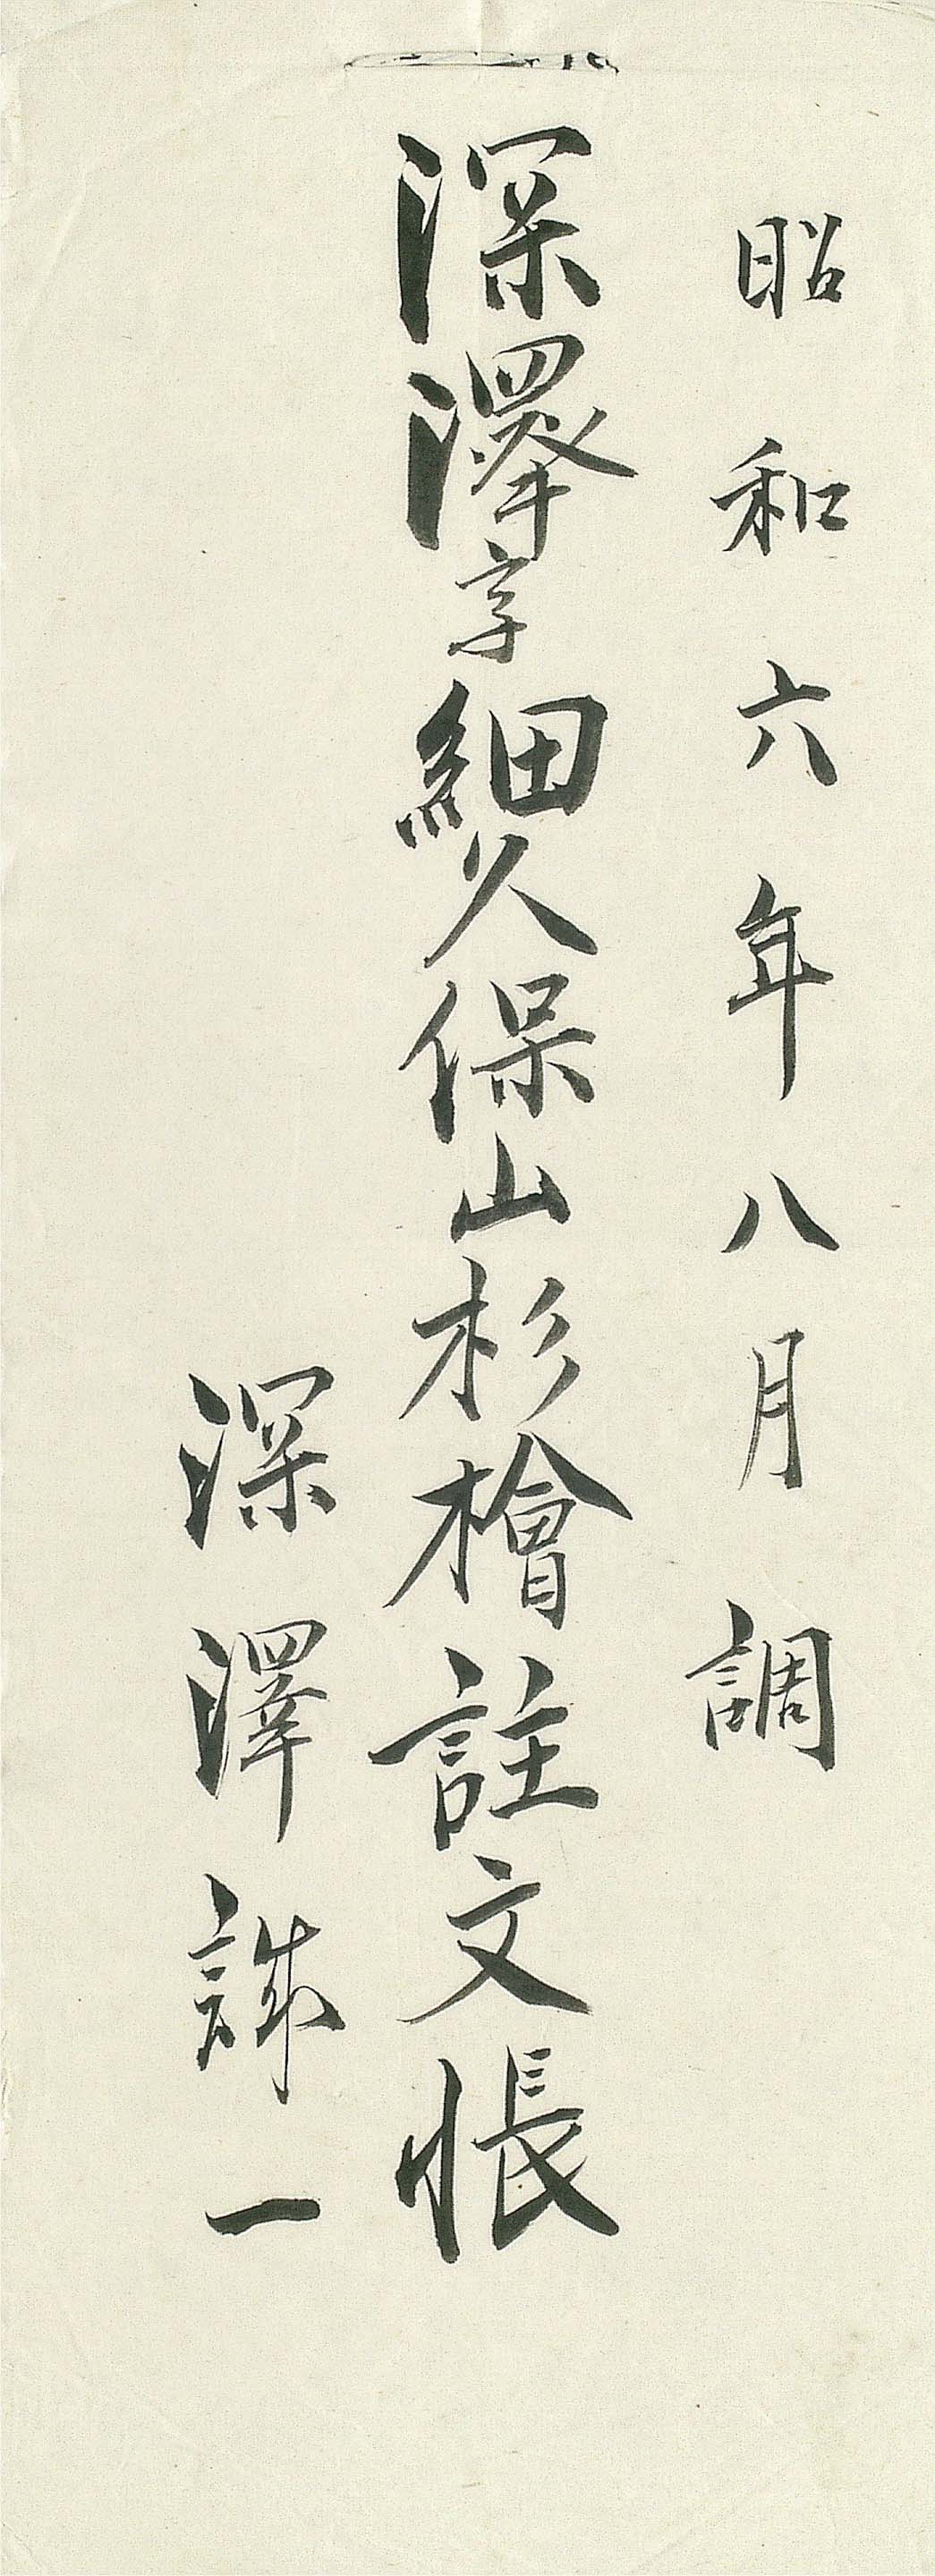 昭和六年八月調
深澤字細久保山杉檜註文帳
深澤誠一